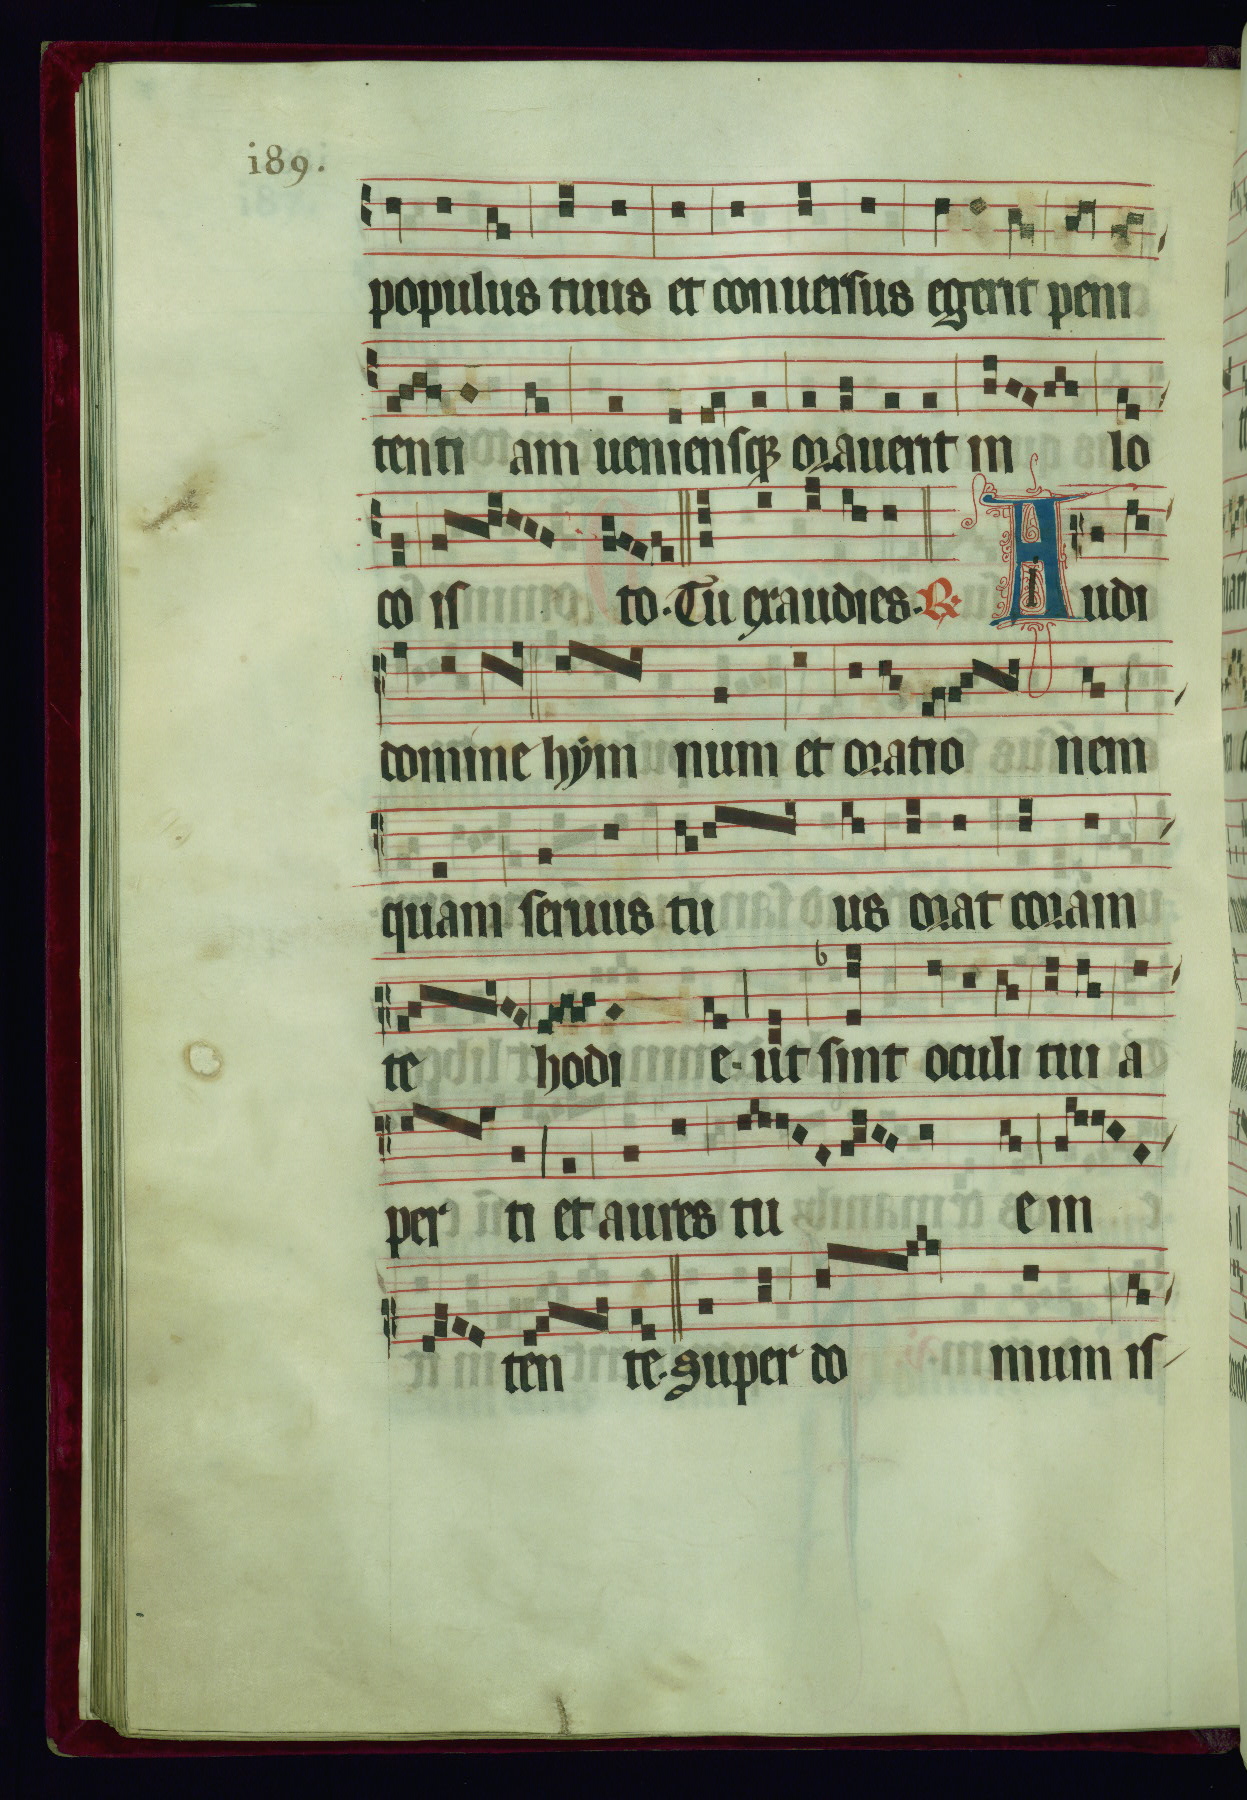 i89.
populus tuus et conuersus egerit peni
tenti am ueniensq3 orauerit in lo
co is to. Tu exaudies. R. Audi
domine hẏm num et oratio nem
quam seruus tu us orat coram
te hodi e. ut sint oculi tui a
per ti et aures tu e in
ten te. Super do mum is